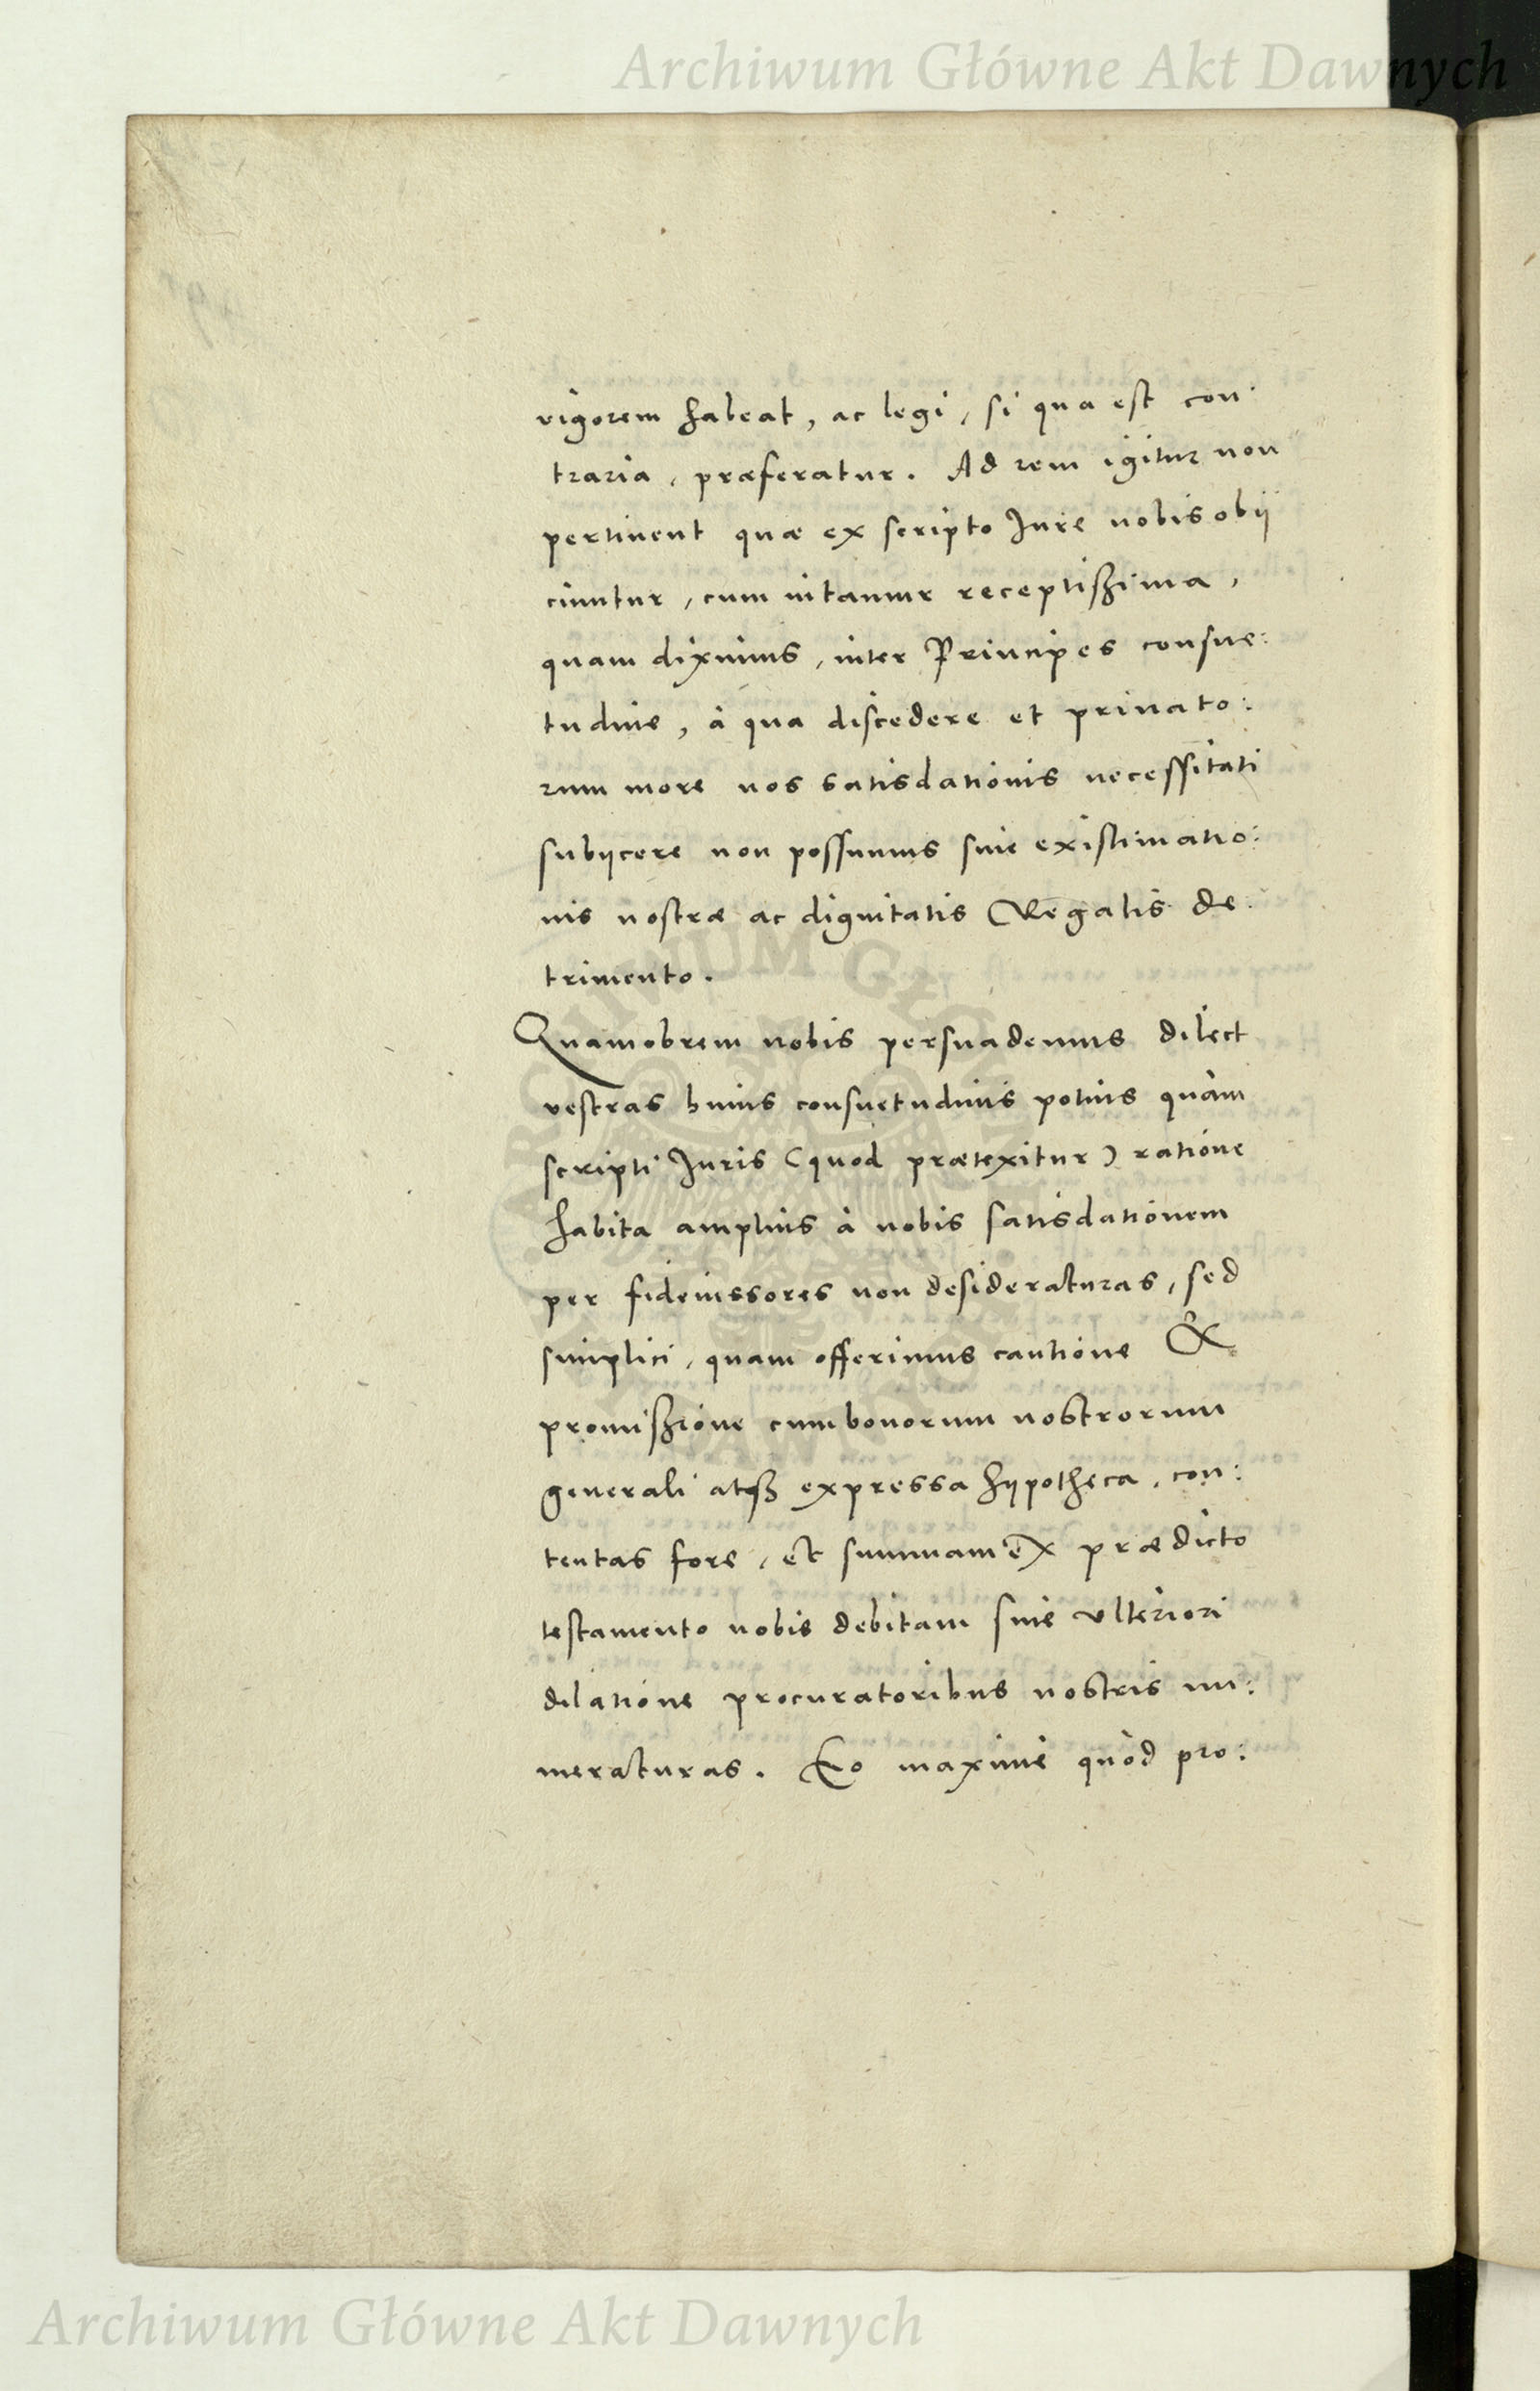 Archiwum Główne Akt Dawnych
vigorem habeat, ac legi, si qua est con:
traria, præferatur. Ad rem igitur non
pertinent quæ ex scripto Jure nobis obij
ciuntur, cum nitamur receptißima,
quam diximus, inter Principes consue:
tudine, à qua discedere et priuato:
rum more nos satisdationis necessitati
subijcere non possumus sine existimatio:
nis nostræ ac dignitatis Regalis de
trimento.
Quamobrem nobis persuademus dilect
vestras huius consuetudinis potius quàm
scripti Juris (quod prætexitur) ratione
habita amplius à nobis satisdationem
per fideiussores non desideraturas, sed
simplici, quam offerimus cautione &
promißione cum bonorum nostrorum
generali atqꝫ expressa hypotheca, con:
tentas fore, et summam ex prædicto
testamento nobis debitam sine vlteriori
dilatione procuratoribus nostris nu:
meraturas. Eo maxime quòd pro:
Archiwum Główne Akt Dawnych